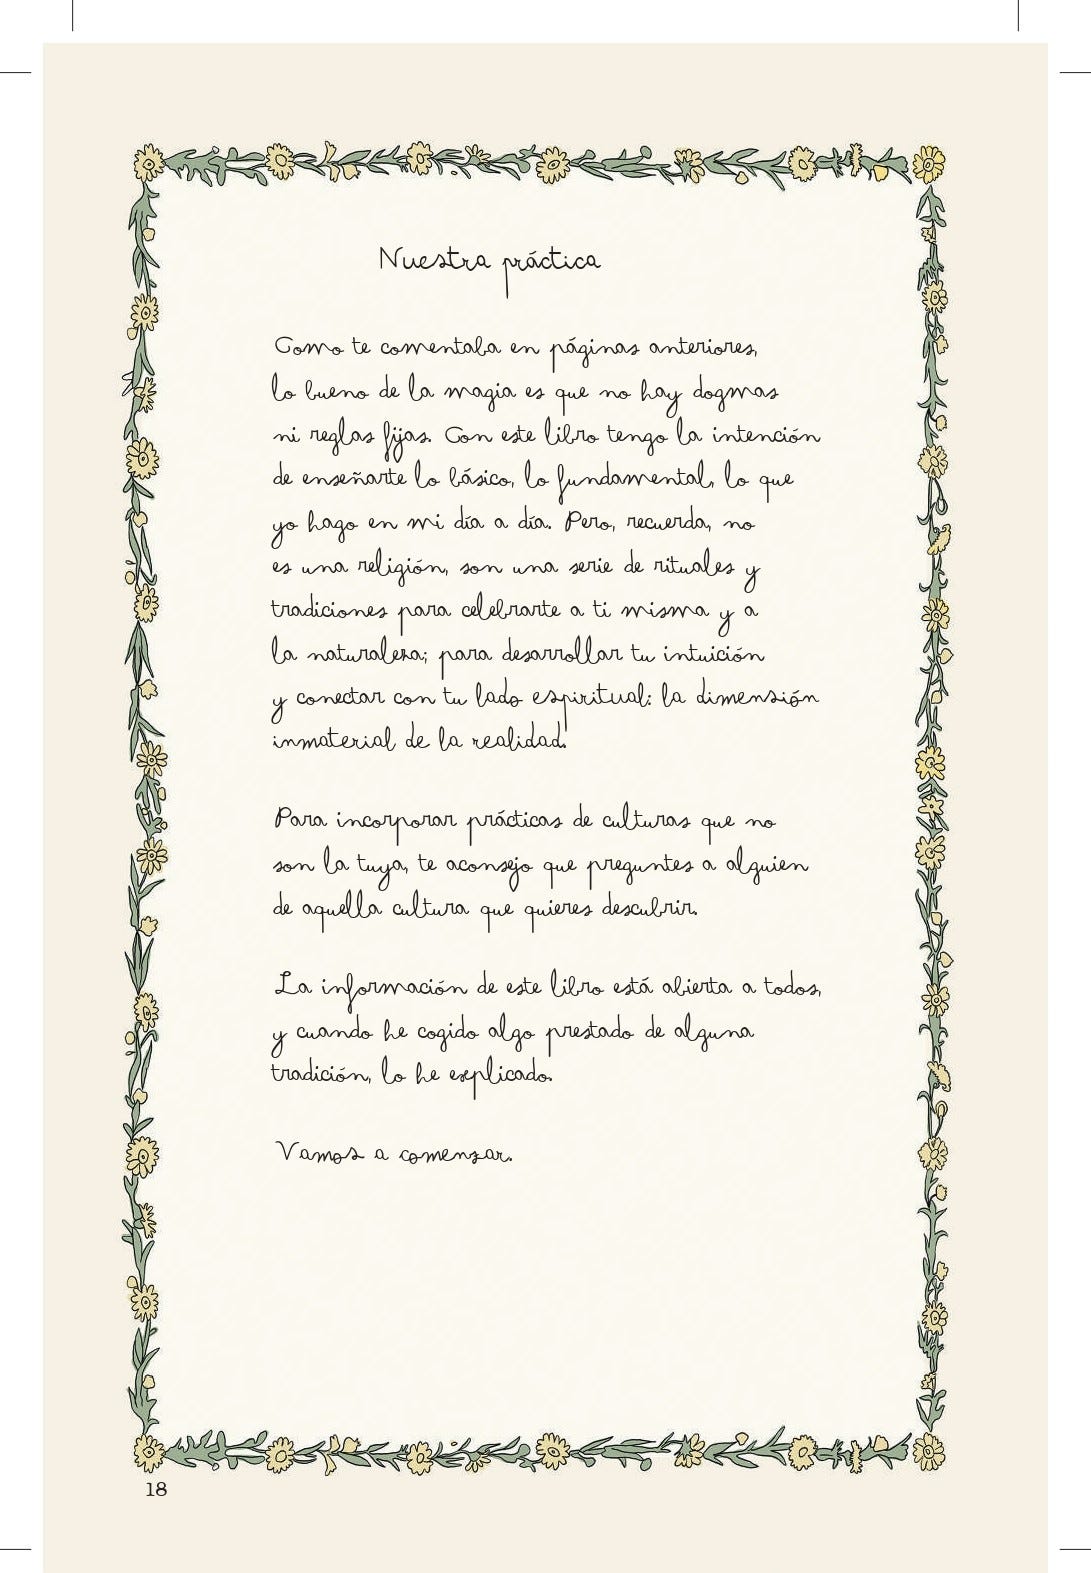 Nuestra práctica
Como te comentaba en páginas anteriores,
lo bueno de la magia es que no hay dogmas
ni reglas fijas. Con este libro tengo la intención
de enseñarte lo básico, lo fundamental, lo que
yo hago en mi día a día. Pero, recuerda, no
es una religión, son una serie de rituales y
tradiciones para celebrarte a ti misma y a
la naturaleza; para desarrollar tu intuición
y conectar con tu lado espiritual: la dimensión
inmaterial de la realidad.
Para incorporar prácticas de culturas que no
son la tuya, te aconsejo que preguntes a alguien
de aquella cultura que quieres descubrir.
La información de este libro está abierta a todos,
y cuando he cogido algo prestado de alguna
tradición, lo he explicado.
Vamos a comenzar.
18